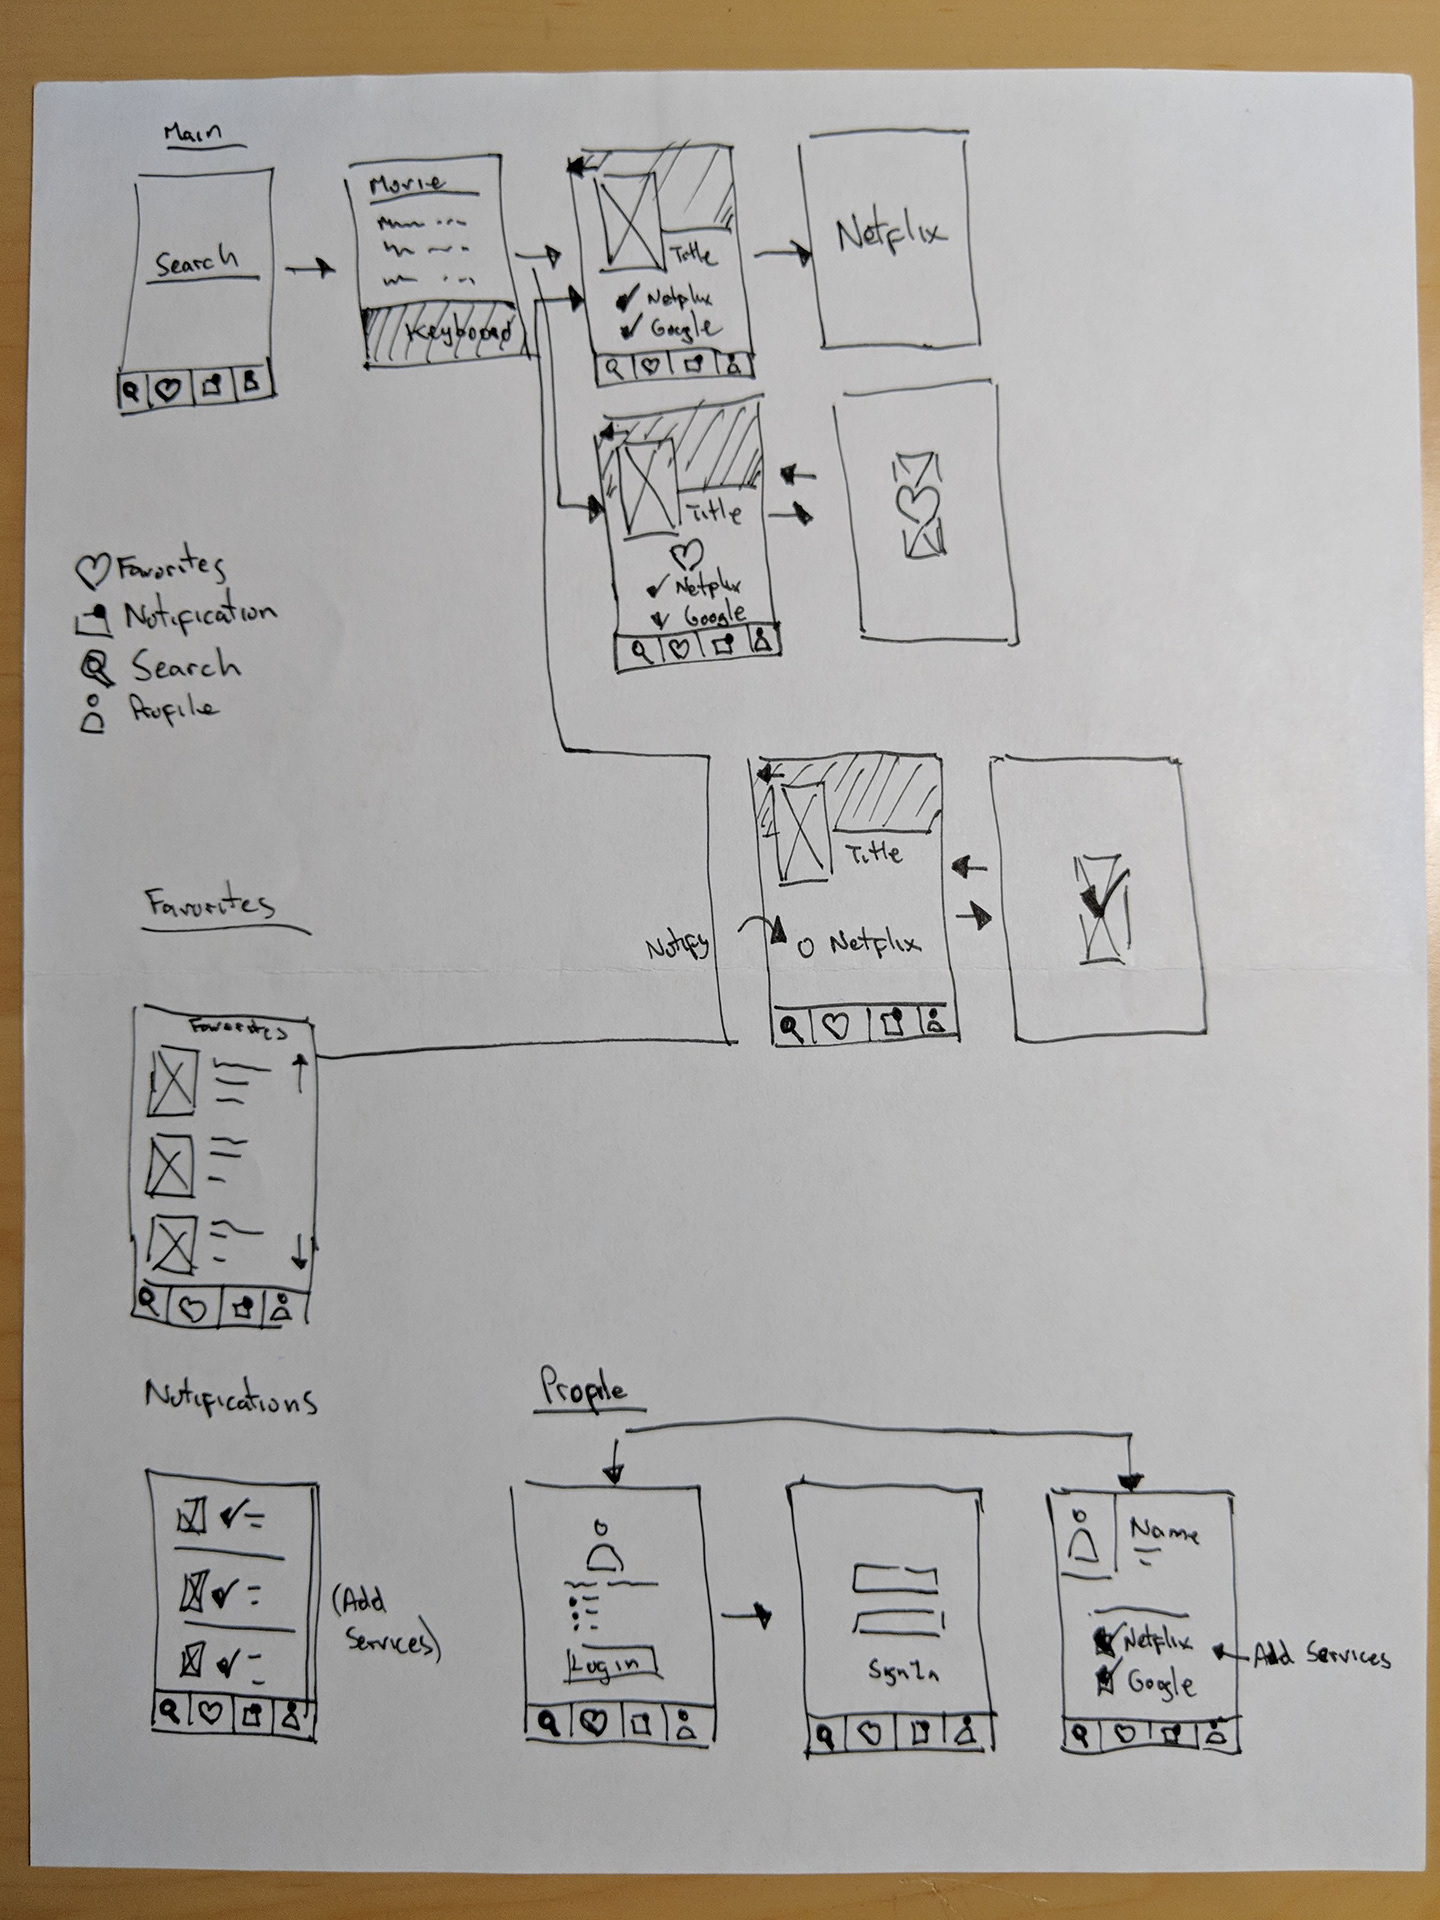 Main
Search
Movie
Keyboard
Title
Netflix
Google
Netflix
Title
Netflix
Google
Favorites
Notification
Search
Profile
Title
Notify
Netflix
Favorites
Favorites
Notifications
(Add
Services)
Profile
Login
Sign In
Name
Netflix
Google
Add Services